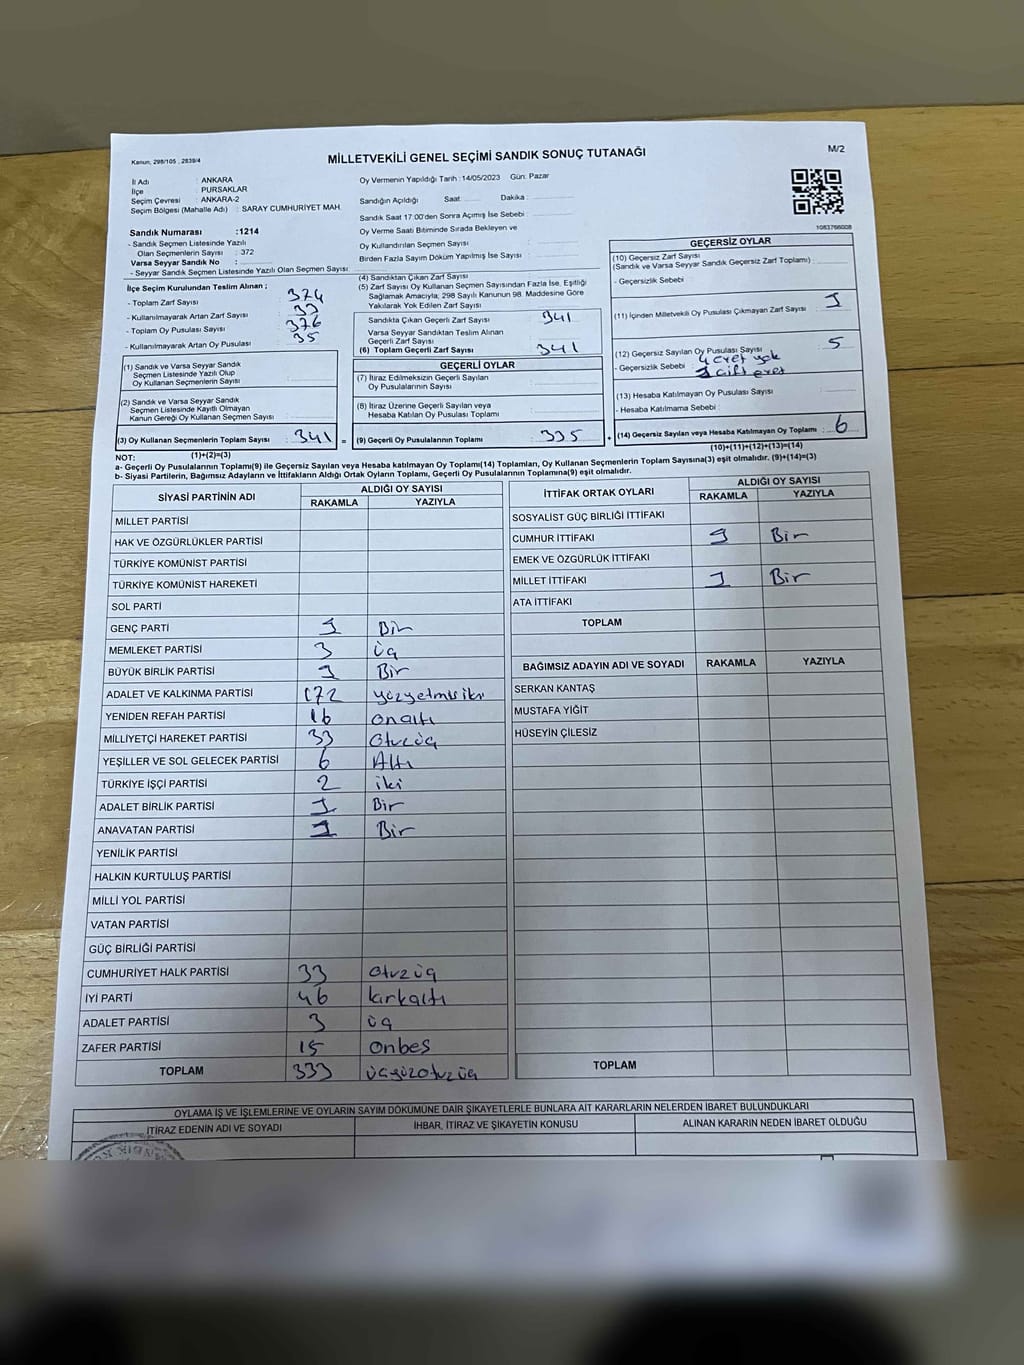 Kanun, 298/105 , 2839/4
MİLLETVEKİLİ GENEL SEÇİMİ SANDIK SONUÇ TUTANAĞI
M/2
İl Adı : ANKARA
İlçe : PURSAKLAR
Seçim Çevresi : ANKARA-2
Seçim Bölgesi (Mahalle Adı) : SARAY CUMHURİYET MAH.
Sandık Numarası :1214
- Sandık Seçmen Listesinde Yazılı
Olan Seçmenlerin Sayısı : 372
Varsa Seyyar Sandık No :
- Seyyar Sandık Seçmen Listesinde Yazılı Olan Seçmen Sayısı :
Oy Vermenin Yapıldığı Tarih : 14/05/2023 Gün: Pazar
Sandığın Açıldığı Saat: Dakika :
Sandık Saat 17:00'den Sonra Açımış İse Sebebi :
Oy Verme Saati Bitiminde Sırada Bekleyen ve
Oy Kullandırılan Seçmen Sayısı :
Birden Fazla Sayım Döküm Yapılmış İse Sayısı :
1083766008
İlçe Seçim Kurulundan Teslim Alınan ;
- Toplam Zarf Sayısı : 374
- Kullanılmayarak Artan Zarf Sayısı : 33
- Toplam Oy Pusulası Sayısı : 376
- Kullanılmayarak Artan Oy Pusulası : 35
(1) Sandık ve Varsa Seyyar Sandık
Seçmen Listesinde Yazılı Olup
Oy Kullanan Seçmenlerin Sayısı :
(2) Sandık ve Varsa Seyyar Sandık
Seçmen Listesinde Kayıtlı Olmayan
Kanun Gereği Oy Kullanan Seçmen Sayısı :
(3) Oy Kullanan Seçmenlerin Toplam Sayısı : 341 =
(1)+(2)=(3)
(4) Sandıktan Çıkan Zarf Sayısı
(5) Zarf Sayısı Oy Kullanan Seçmen Sayısından Fazla İse, Eşitliği
Sağlamak Amacıyla; 298 Sayılı Kanunun 98. Maddesine Göre
Yakılarak Yok Edilen Zarf Sayısı
Sandıkta Çıkan Geçerli Zarf Sayısı : 341
Varsa Seyyar Sandıktan Teslim Alınan
Geçerli Zarf Sayısı :
(6) Toplam Geçerli Zarf Sayısı : 341
GEÇERLİ OYLAR
(7) İtiraz Edilmeksizin Geçerli Sayılan
Oy Pusulalarının Sayısı :
(8) İtiraz Üzerine Geçerli Sayılan veya
Hesaba Katılan Oy Pusulası Sayısı :
(9) Geçerli Oy Pusulalarının Toplamı : 335 +
GEÇERSİZ OYLAR
(10) Geçersiz Zarf Sayısı
(Sandık ve Varsa Seyyar Sandık Geçersiz Zarf Toplamı) :
- Geçersizlik Sebebi :
(11) İçinden Milletvekili Oy Pusulası Çıkmayan Zarf Sayısı : 1
(12) Geçersiz Sayılan Oy Pusulası Sayısı : 5
- Geçersizlik Sebebi : 4 evet yok
1 çift evet
(13) Hesaba Katılmayan Oy Pusulası Sayısı :
- Hesaba Katılmama Sebebi :
(14) Geçersiz Sayılan veya Hesaba Katılmayan Oy Toplamı : 6
(10)+(11)+(12)+(13)=(14)
NOT:
a- Geçerli Oy Pusulalarının Toplamı(9) ile Geçersiz Sayılan veya Hesaba katılmayan Oy Toplamı(14) Toplamları, Oy Kullanan Seçmenlerin Toplam Sayısına(3) eşit olmalıdır. (9)+(14)=(3)
b- Siyasi Partilerin, Bağımsız Adayların ve İttifakların Aldığı Ortak Oyların Toplamı, Geçerli Oy Pusulalarının Toplamına(9) eşit olmalıdır.
SİYASİ PARTİNİN ADI ALDIĞI OY SAYISI
RAKAMLA YAZIYLA
MİLLET PARTİSİ
HAK VE ÖZGÜRLÜKLER PARTİSİ
TÜRKİYE KOMÜNİST PARTİSİ
TÜRKİYE KOMÜNİST HAREKETİ
SOL PARTİ
GENÇ PARTİ 1 Bir
MEMLEKET PARTİSİ 3 üç
BÜYÜK BİRLİK PARTİSİ 1 Bir
ADALET VE KALKINMA PARTİSİ 172 yüzyetmişiki
YENİDEN REFAH PARTİSİ 16 onaltı
MİLLİYETÇİ HAREKET PARTİSİ 33 otuzüç
YEŞİLLER VE SOL GELECEK PARTİSİ 6 Altı
TÜRKİYE İŞÇİ PARTİSİ 2 iki
ADALET BİRLİK PARTİSİ 1 Bir
ANAVATAN PARTİSİ 1 Bir
YENİLİK PARTİSİ
HALKIN KURTULUŞ PARTİSİ
MİLLİ YOL PARTİSİ
VATAN PARTİSİ
GÜÇ BİRLİĞİ PARTİSİ
CUMHURİYET HALK PARTİSİ 33 otuzüç
İYİ PARTİ 46 kırkaltı
ADALET PARTİSİ 3 üç
ZAFER PARTİSİ 15 onbes
TOPLAM 333 üçyüzotuzüç
İTTİFAK ORTAK OYLARI ALDIĞI OY SAYISI
RAKAMLA YAZIYLA
SOSYALİST GÜÇ BİRLİĞİ İTTİFAKI
CUMHUR İTTİFAKI 1 Bir
EMEK VE ÖZGÜRLÜK İTTİFAKI
MİLLET İTTİFAKI 1 Bir
ATA İTTİFAKI
TOPLAM
BAĞIMSIZ ADAYIN ADI VE SOYADI RAKAMLA YAZIYLA
SERKAN KANTAŞ
MUSTAFA YİĞİT
HÜSEYİN ÇİLESİZ
TOPLAM
OYLAMA İŞ VE İŞLEMLERİNE VE OYLARIN SAYIM DÖKÜMÜNE DAİR ŞİKAYETLERLE BUNLARA AİT KARARLARIN NELERDEN İBARET BULUNDUKLARI
İTİRAZ EDENİN ADI VE SOYADI İHBAR, İTİRAZ VE ŞİKAYETİN KONUSU ALINAN KARARIN NEDEN İBARET OLDUĞU